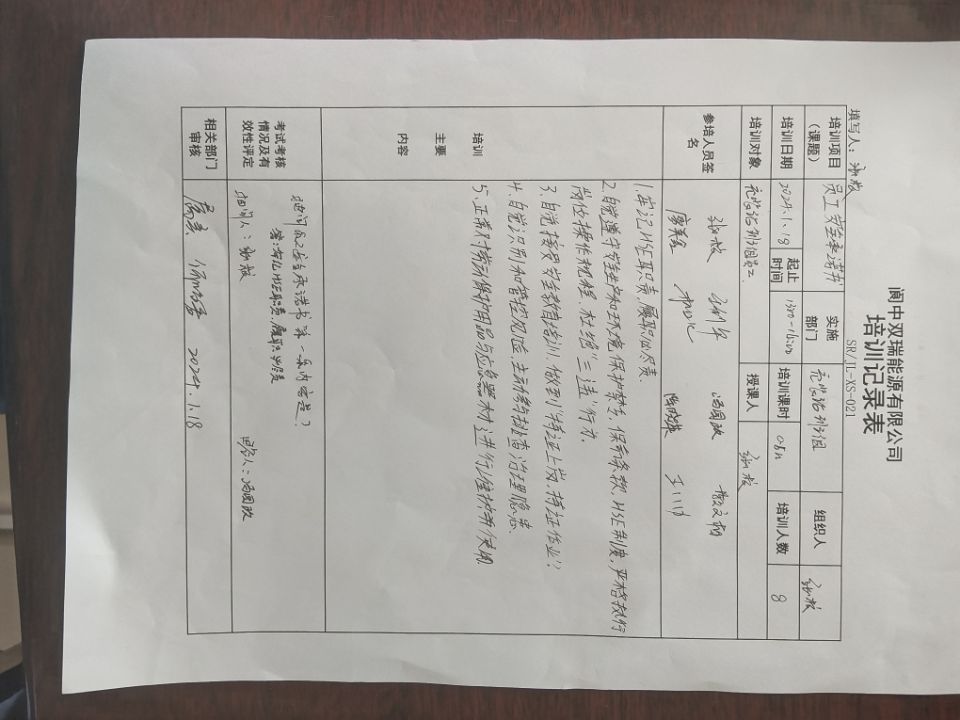 阆中双瑞能源有限公司
培训记录表
SR/JL-XS-021
填写人：张敏
培训项目（课题） 员工安全承诺书 实施部门 充装站班组 组织人 张敏
培训日期 2024.1.18 起止时间 1500-1620 培训课时 0.5h 培训人数 8
培训对象 充装站班组员工 授课人 张敏
参培人员签名 张敏 汤国政
王川
培训主要内容
1.牢记HSE职责,履职尽责.
2.自觉遵守安全生产和环境保护禁令、保命条款、HSE制度,严格执行
岗位操作规程.杜绝"三违"行为.
3.自觉接受安全教育培训.做到"持证上岗,持证作业".
4.自觉识别和管控风险,主动参与排查治理隐患.
5.正常对劳动保护用品与应急器材进行维护和使用.
考试考核情况及有效性评定
提问:员工安全承诺书第一条内容是?
答:牢记HSE职责,履职尽责
提问人:张敏 回答人:汤国政
相关部门审核 2024.1.18